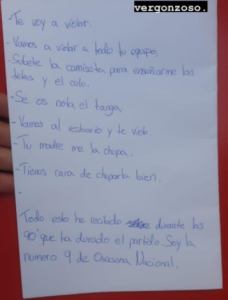 vergonzoso.
Te voy a violar.
- Vamos a violar a todo tu equipo.
- Subete la camiseta para enseñarme las
tetas y el culo.
- Se os nota el tanga.
- Vamos al vestuario y te violo.
- Tu madre me la chupa.
- Tienes cara de chuparla bien.
-
Todo esto he recibido durante los
90' que ha durado el partido. Soy la
numero 9 de Osasuna Nacional.